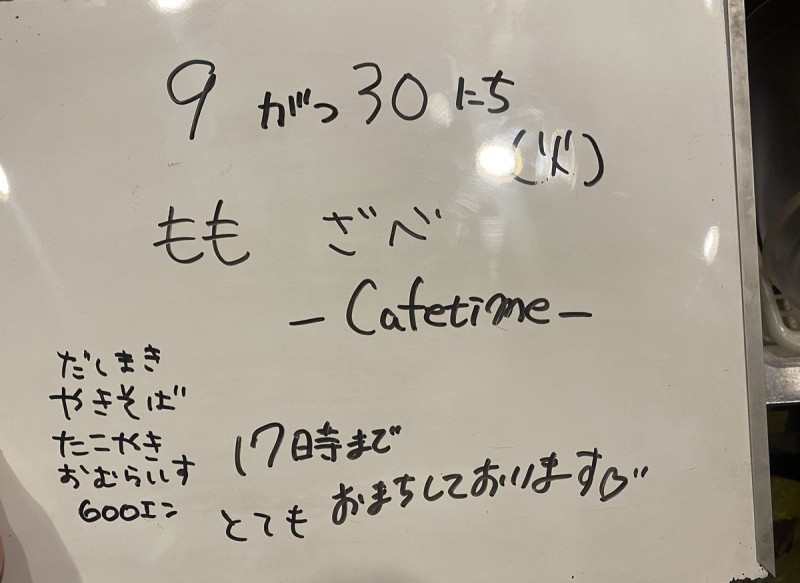 9がつ30にち
(火)
もも ざべ
- Cafetime -
だしまき
やきそば
たこやき
おむらいす
600エン
17時まで
とても おまちしております